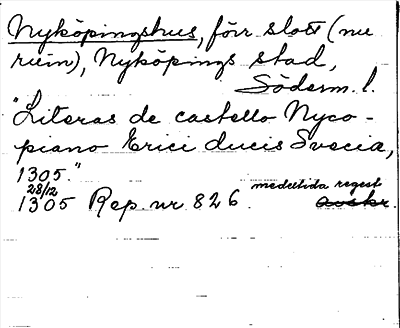 Nyköpingshus, förr slott (nu
ruin), Nyköpings stad,
Söderm. l.
"Literas de castello Nyco-
piano Erici ducis Svecia,
1305."
28/12
1305 Rep. nr 826. medeltida regest
avskr.